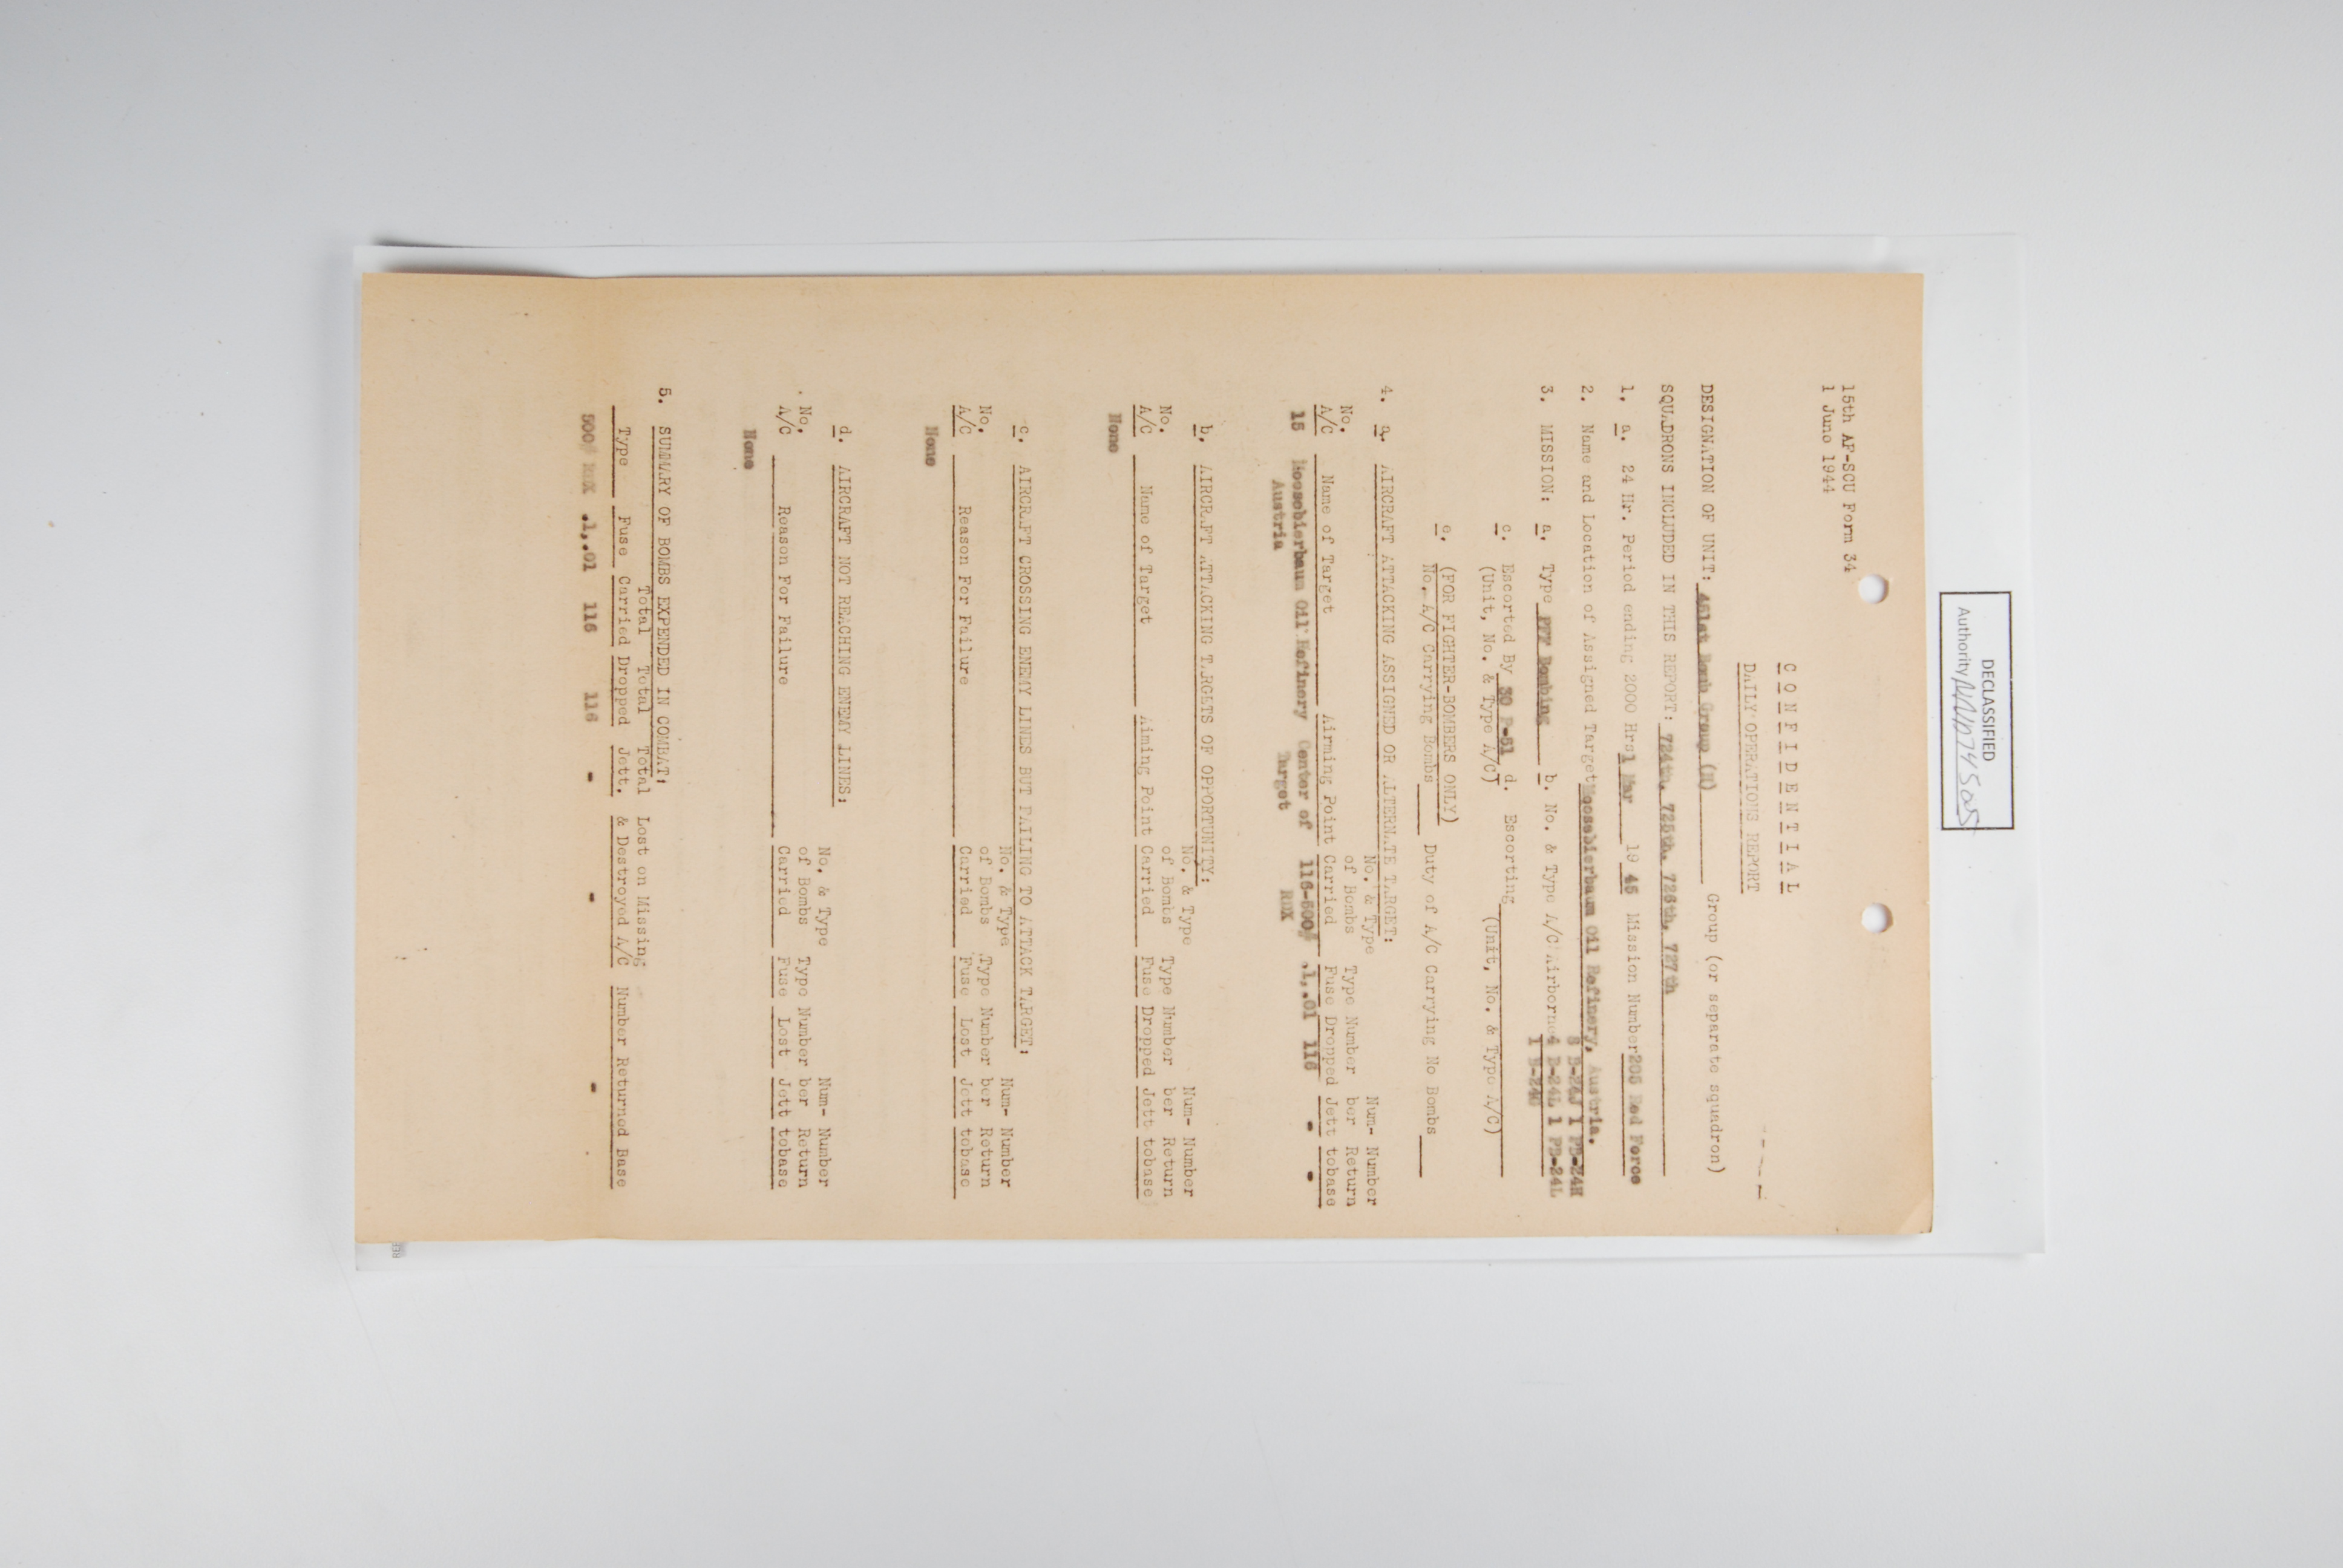 DECLASSIFIED
Authority NND 745005
15th AF-SCU Form 34
1 June 1944
C O N F I D E N T I A L
DAILY OPERATIONS REPORT
DESIGNATION OF UNIT: 451st Bomb Group (H) Group (or separate squadron)
SQUADRONS INCLUDED IN THIS REPORT: 724th, 725th, 726th, 727th
1. a. 24 Hr. Period ending 2000 Hrs 1 Mar 19 45 Mission Number 205 Red Force
2. Name and Location of Assigned Target Moosebierbaum Oil Refinery, Austria.
8 B-24J 1 PB-24H
3. MISSION: a. Type PFF Bombing b. No. & Type A/C Airborne 4 B-24L 1 PB-24L
1 B-24G
c. Escorted By 30 P-51 d. Escorting
(Unit, No. & Type A/C) (Unit, No. & Type A/C)
e. (FOR FIGHTER-BOMBERS ONLY)
No. A/C Carrying Bombs Duty of A/C Carrying No Bombs
4. a. AIRCRAFT ATTACKING ASSIGNED OR ALTERNATE TARGET:
No. & Type Num- Number
No. of Bombs Type Number ber Return
A/C Name of Target Airming Point Carried Fuse Dropped Jett tobase
15 Moosebierbaum Oil Refinery Center of 116-500# .1,.01 116 - -
Austria Target RDX
b. AIRCRAFT ATTACKING TARGETS OF OPPORTUNITY:
No. & Type Num- Number
No. of Bombs Type Number ber Return
A/C Name of Target Aiming Point Carried Fuse Dropped Jett tobase
None
c. AIRCRAFT CROSSING ENEMY LINES BUT FAILING TO ATTACK TARGET:
No. & Type Num- Number
No. of Bombs Type Number ber Return
A/C Reason For Failure Carried Fuse Lost Jett tobase
None
d. AIRCRAFT NOT REACHING ENEMY LINES:
No. & Type Num- Number
No. of Bombs Type Number ber Return
A/C Reason For Failure Carried Fuse Lost Jett tobase
None
5. SUMMARY OF BOMBS EXPENDED IN COMBAT:
Total Total Total Lost on Missing
Type Fuse Carried Dropped Jett. & Destroyed A/C Number Returned Base
500# RDX .1,.01 116 116 - - -